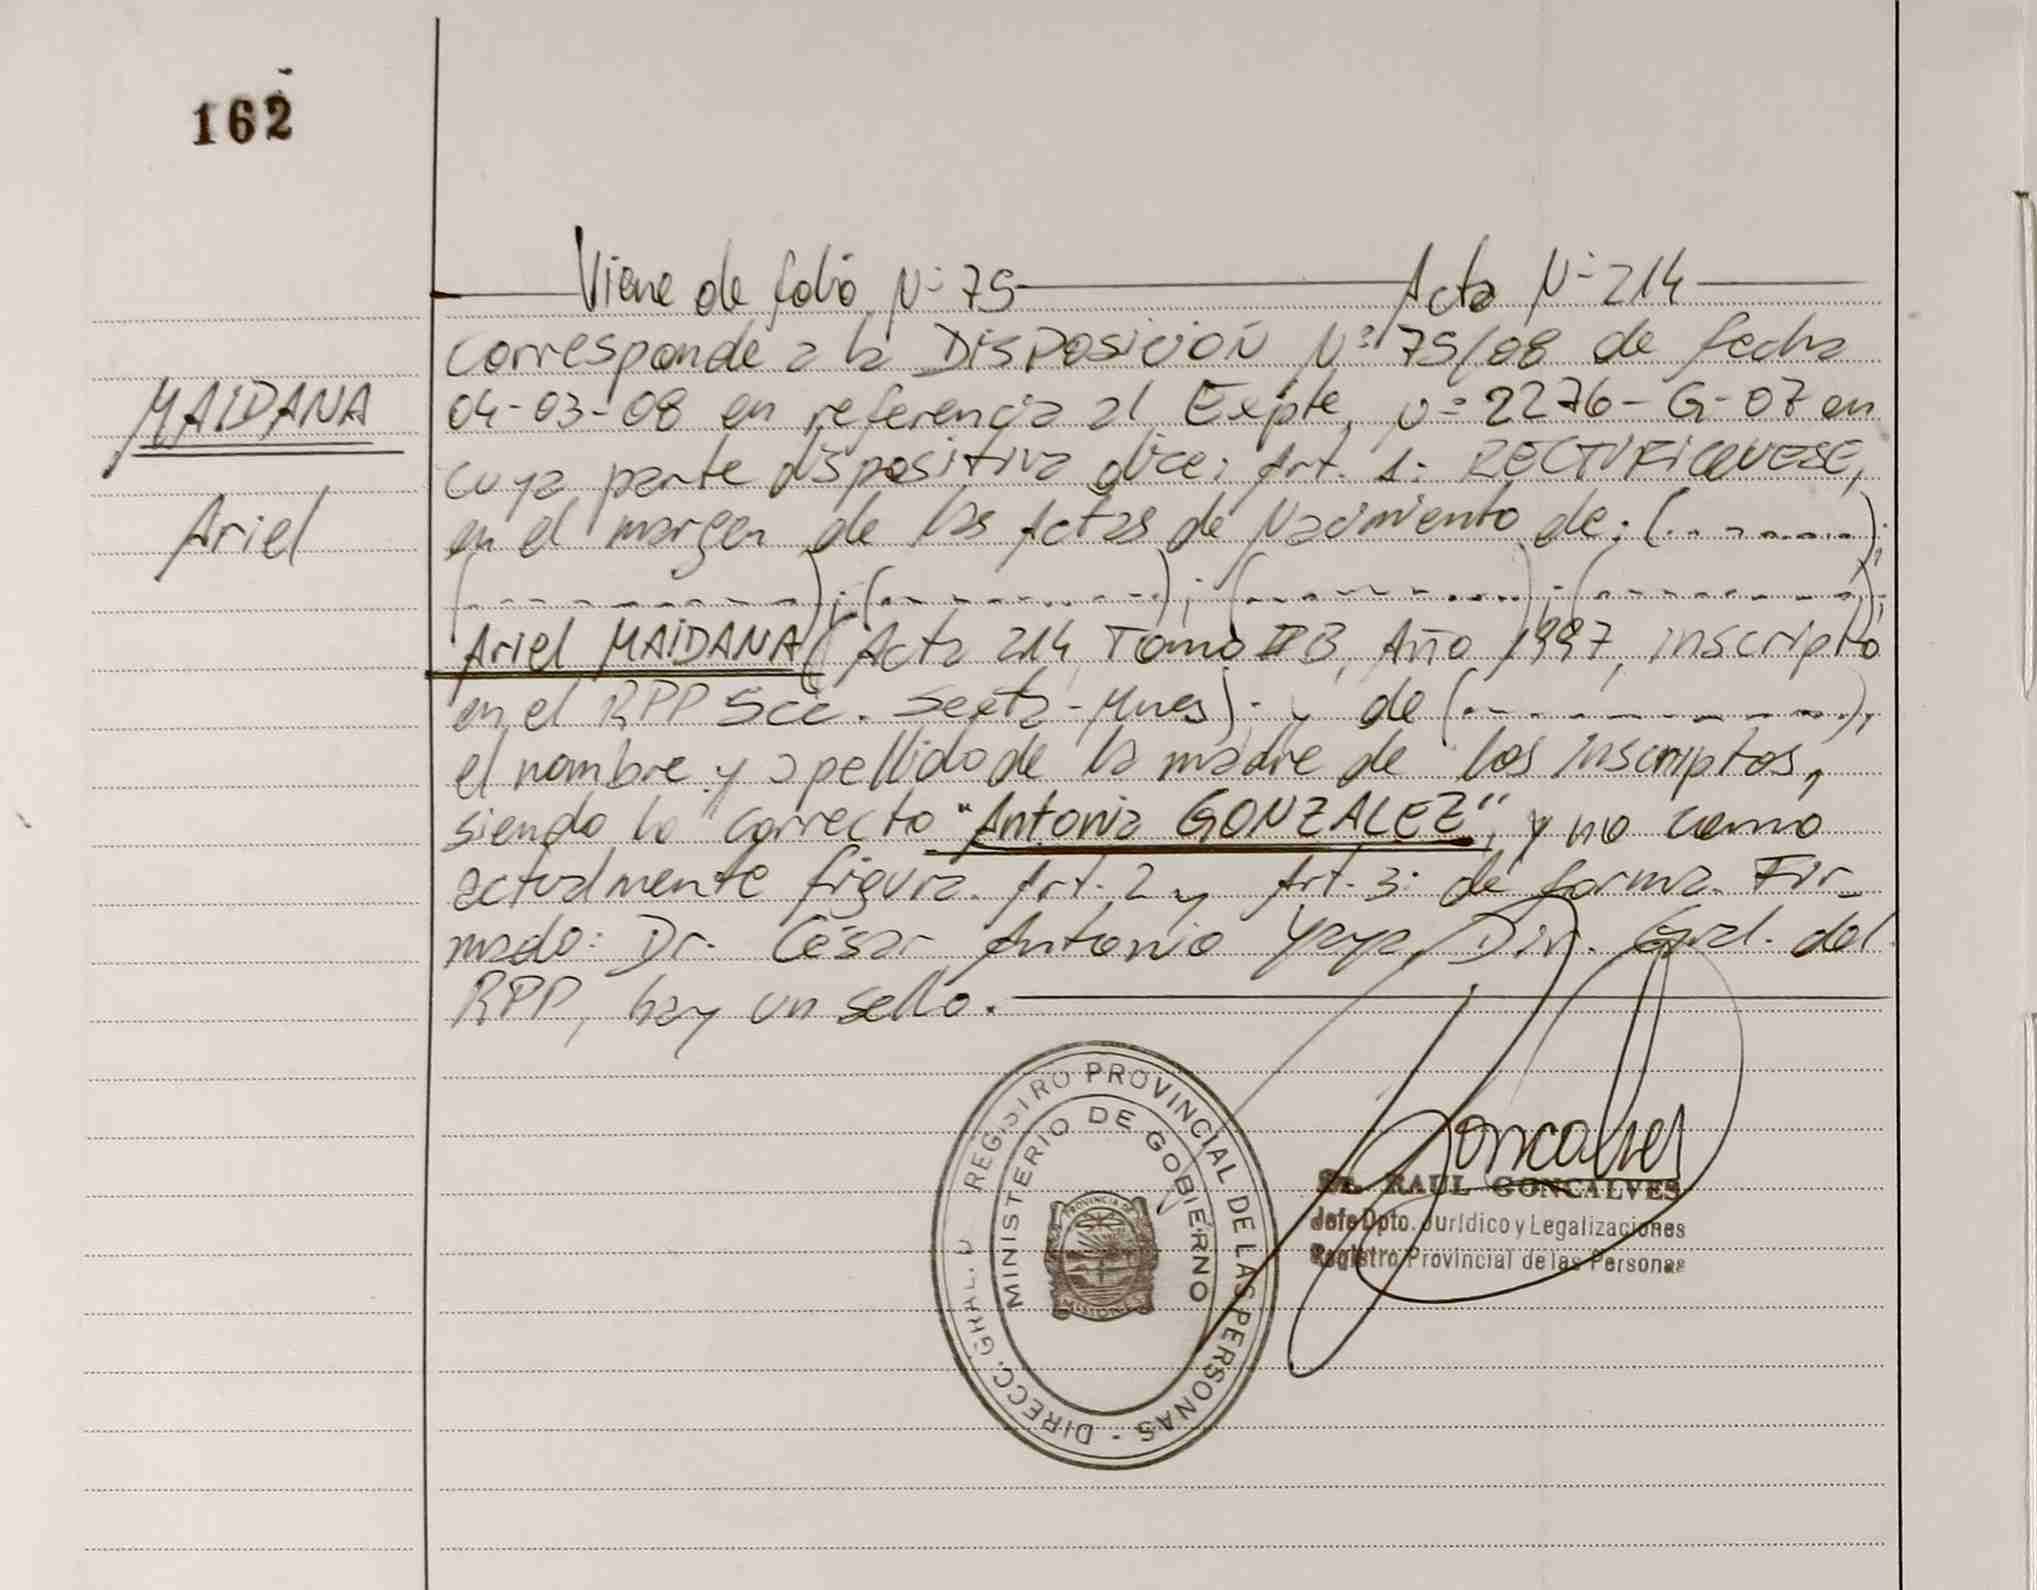 162
Viene de folio Nº 75 Acta Nº 214
MAIDANA
Ariel
corresponde a la DISPOSICIÓN Nº 75/08 de fecha
04-03-08 en referencia al Expte. nº 2276-G-07 en
cuya parte dispositiva dice: Art. 1: RECTIFIQUESE,
en el margen de las Actas de Nacimiento de: (.........);
(.............); (............); (............); (............);
Ariel MAIDANA (Acta 214, Tomo II B, Año 1997, inscripto
en el RPP Scc. Sexta - Mnes); y de (.............),
el nombre y apellido de la madre de los inscriptos,
siendo lo correcto "Antonia GONZALEZ", y no como
actualmente figura. Art. 2 y Art. 3: de forma. Fir-
mado: Dr. César Antonio Yaya, Dir. Gral. del
RPP, hay un sello.
REGISTRO PROVINCIAL DE LAS PERSONAS - DIRECC. GRAL.
MINISTERIO DE GOBIERNO
PROVINCIA DE
MISIONES
Goncalves
Dr. RAUL GONCALVES
Jefe Dpto. Jurídico y Legalizaciones
Registro Provincial de las Personas